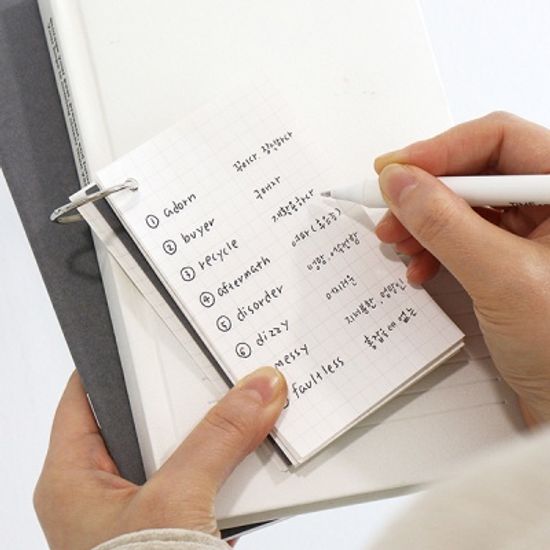 ① adorn 꾸미다, 장식하다
② buyer 구매자
③ recycle 재활용하다
④ aftermath 여파(후유증)
⑤ disorder
⑥ dizzy 어지러운
messy 지저분한, 엉망인
faultless 흠잡을데 없는
TIME